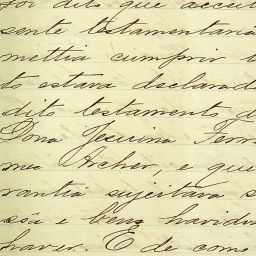 foi dito que accei
sente testamentaria
mettia cumprir o
to estava declarado
dito testamento d
Dona Jesuina Ferr
mes Archer, e que
rantia sujeitava s
sôa e bens havidos
haver. E de como